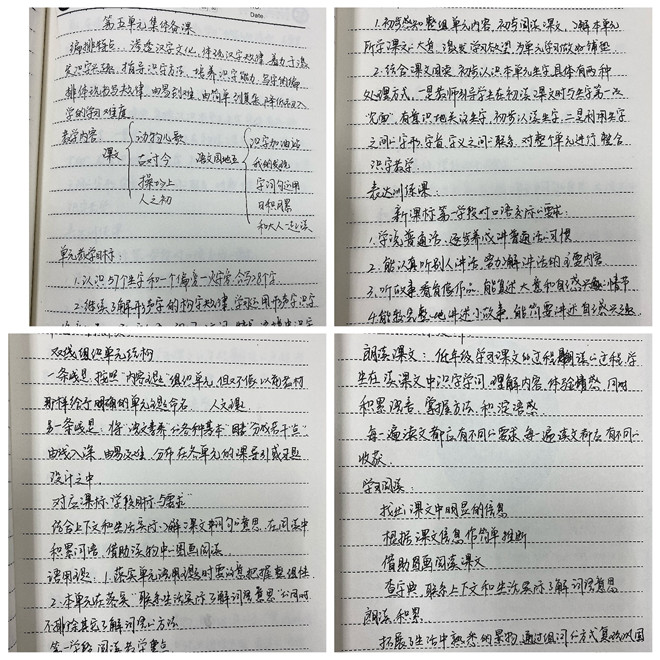 Date
第五单元集体备课
编排特点：渗透汉字文化，体现汉字规律，着力于激
发识字兴趣，指导识字方法，培养识字能力，写字的编
排体现书写规律，由易到难，由简单到复杂，降低
学的学习难度
教学内容
课文
动物儿歌
古对今
操场上
人之初
语文园地五
识字加油站
我的发现
字词句运用
日积月累
和大人一起读
单元教学目标：
1.认识57个生字和一个偏旁
2.继续了解形声字的构字规律，学习运用形声字识字
1.初步感知整组单元内容，初步阅读课文，了解本单元
所学课文的大意，激发学习欲望，为单元学习做好铺垫
2.结合课文阅读，初步认识本单元生字，具体有两种
处理方式，一是教师引导学生在初读课文时与生字第一次
"见面"，有意识地关注生字，初步认读生字，二是利用生字
之间的字形，字音，字义之间的联系，对整个单元进行整合
识字教学。
表达训练课：
新课标第一学段对口语交际的要求：
1.学说普通话，逐步养成讲普通话的习惯
2.能认真听别人讲话，努力了解讲话的主要内容
3.听故事看音像作品，能复述大意和自己感兴趣的情节
4.能较完整地讲述小故事，能简要讲述自己感兴趣
双线组织单元结构
一条线是：按照"内容主题"组织单元，但又不像以前教材
那样给予明确的单元主题命名　人文主题
另一条线是：将"语文素养"的各种基本"因素"分成若干点
由浅入深，由易及难，分布在各单元的课后引或习题
设计之中
对应课标"学段目标与要求"
结合上下文和生活实际了解课文中词句的意思，在阅读中
积累词语，借助读物中的图画阅读
课用课题：1.落实单元语用课题时需注意把握整组性
2.本单元在落实"联系生活实际了解词语意思"的同时
不排除其它了解词语的方法
第一学段阅读教学重点
朗读课文：低年级学习课文的过程朗读的过程，学
生在读课文中识字学词，理解内容，体会情感，同时
积累语言，掌握方法，积淀语感
每一遍读文都应有不同的要求，每一遍读文都应有不同的
收获
学习阅读：
找出课文中明显的信息
根据课文信息作简单推断
借助图画阅读课文
查字典，联系上下文和生活实际了解词语意思
朗读积累
拓展了生活中熟悉的事物，通过组词的方式复习巩固